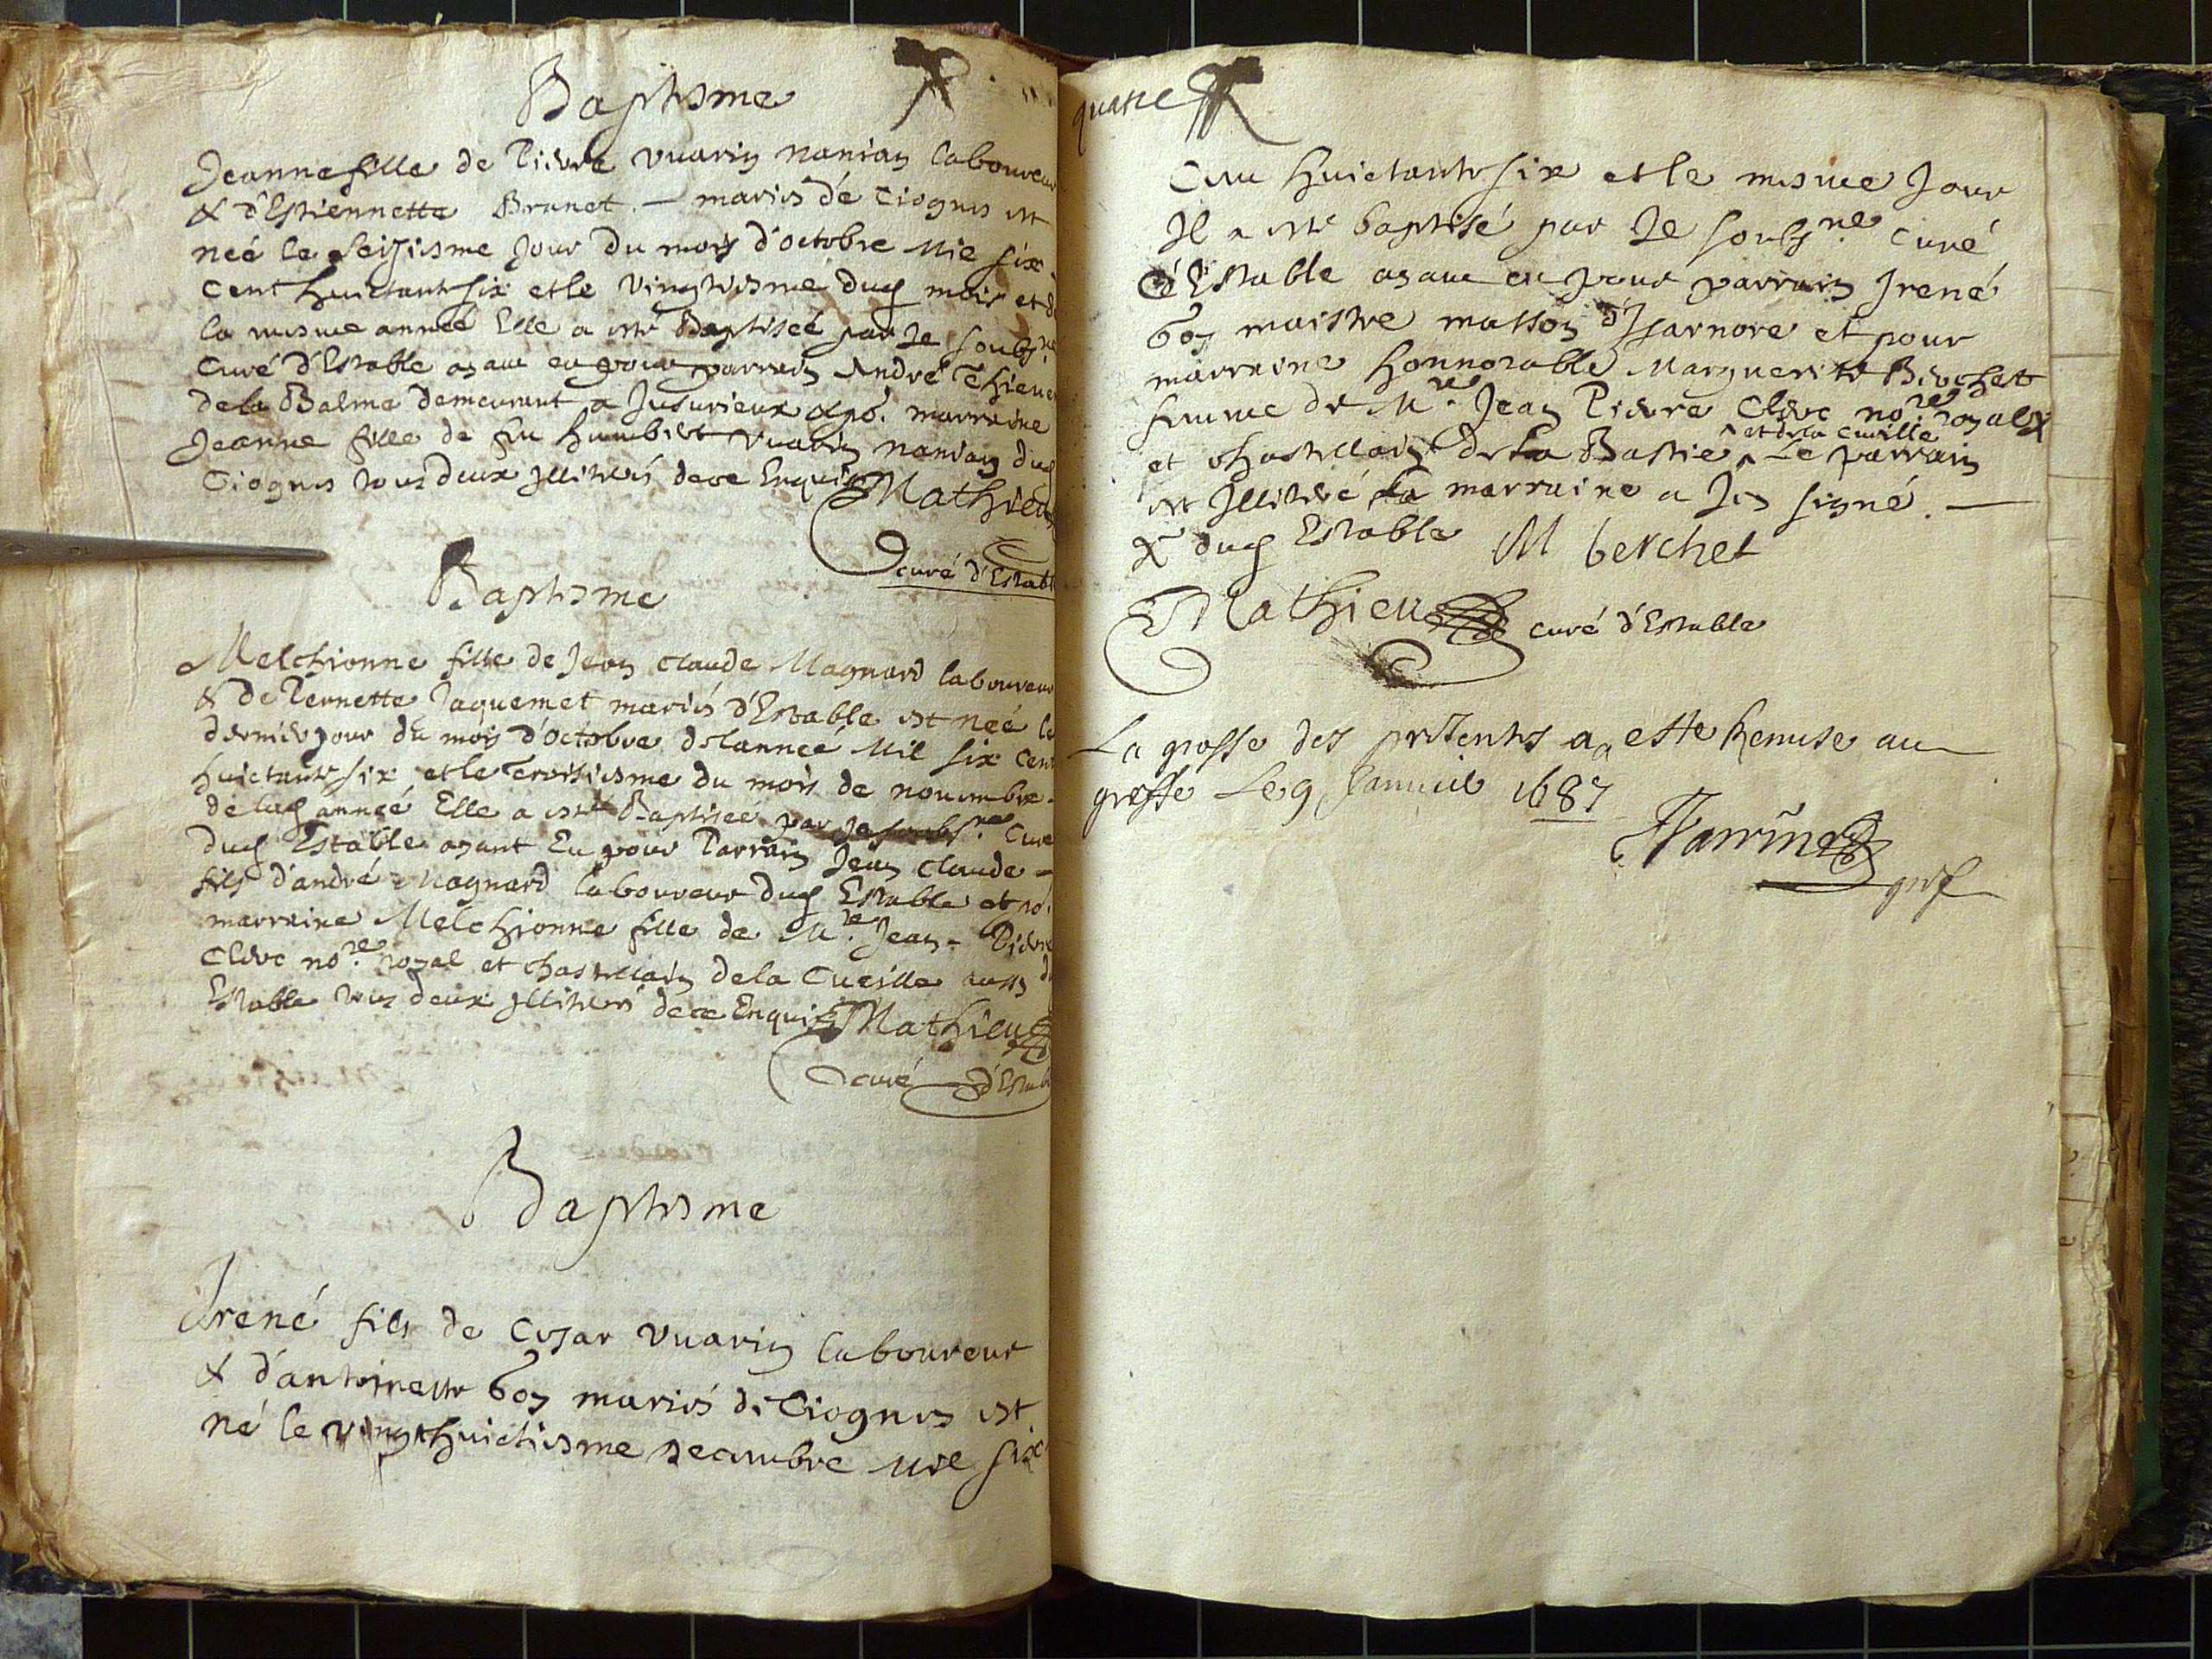 Baptesme
Jeanne fille de Pierre vuarin nanian laboureur
& d'Estiennette Brunet – mariés de Ciognes est
neé le seiziesme jour du mois d'octobre Mil six
cent huictante six et le vingtiesme dud mois et d
la mesme anneé Elle a esté Baptiseé par Je soubsne
Curé d'Estable ayant eu pour parrain André Thieue
de la Balme demeurant a Jusurieux & po. marraine
Jeanne fille de feu humbert vuarin nanian dud
Ciognes tous deux jlliterés de ce Enquis
Mathieu
curé d'Establ
Baptesme
Melchionne fille de Jean Claude Magnard laboureur
& de Pernette Jaquemet mariés d'Estable est neé le
dernier jour du mois d'octobre de l'anneé Mil six cent
huictante six et le troisiesme du mois de nouembre
de lad anneé Elle a esté Baptiseé par Je soubsne Curé
dud Estable ayant Eu pour Parrain Jean Claude –
fils d'andré Magnard laboureur dud Estable et po.
marraine Melchionne fille de Mre Jean – Pierre
Clerc nore royal et chastellain de la Cueille aussy d
Estable tous deux jlliterés de ce Enquis Mathieu
curé d'Establ
Baptesme
Irené fils de Cesar vuarin laboureur
& d'antoinette boz mariés de Ciognes est
né le vingthuictiesme decembre mil six
quatre
Cent huictante six et le mesme Jour
Il a esté baptisé par Je soubsne curé
d'Estable ayant eu pour parrain Irené
boz maistre masson d'Isarnore et pour
marraine honnorable Marguerite Berchet
femme de Mre Jean Pierre Clerc nore royal
et chastellain de La Bastie ^ et de la Cueille Le parrain
est Jlliteré la marraine a Icy signé. –
& dud Estable M berchet
Mathieu curé d'Estable
La grosse des presents a este Remise au
greffe Le 9 Januier 1687
gref